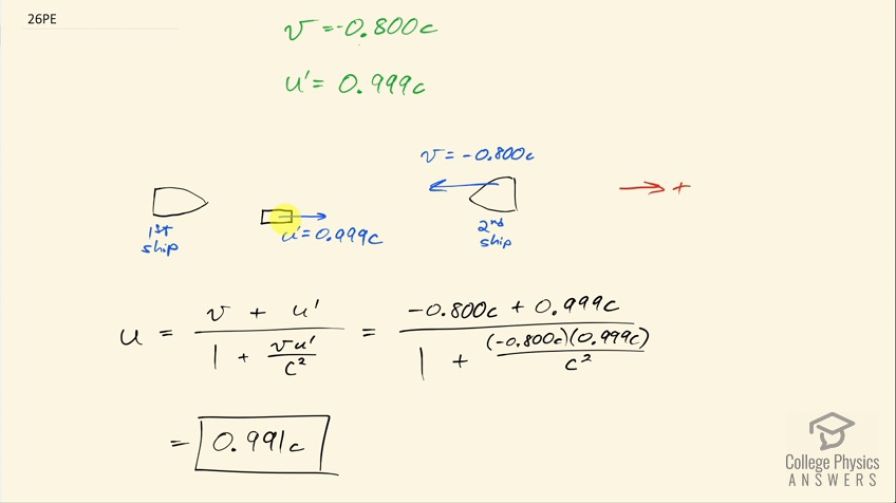 26PE
v = -0.800c
u' = 0.999c
v = -0.800c
1st ship
u' = 0.999c
2nd ship
→ +
u = (v + u') / (1 + vu'/c²) = (-0.800c + 0.999c) / (1 + (-0.800c)(0.999c)/c²)
= 0.991c
College Physics
ANSWERS